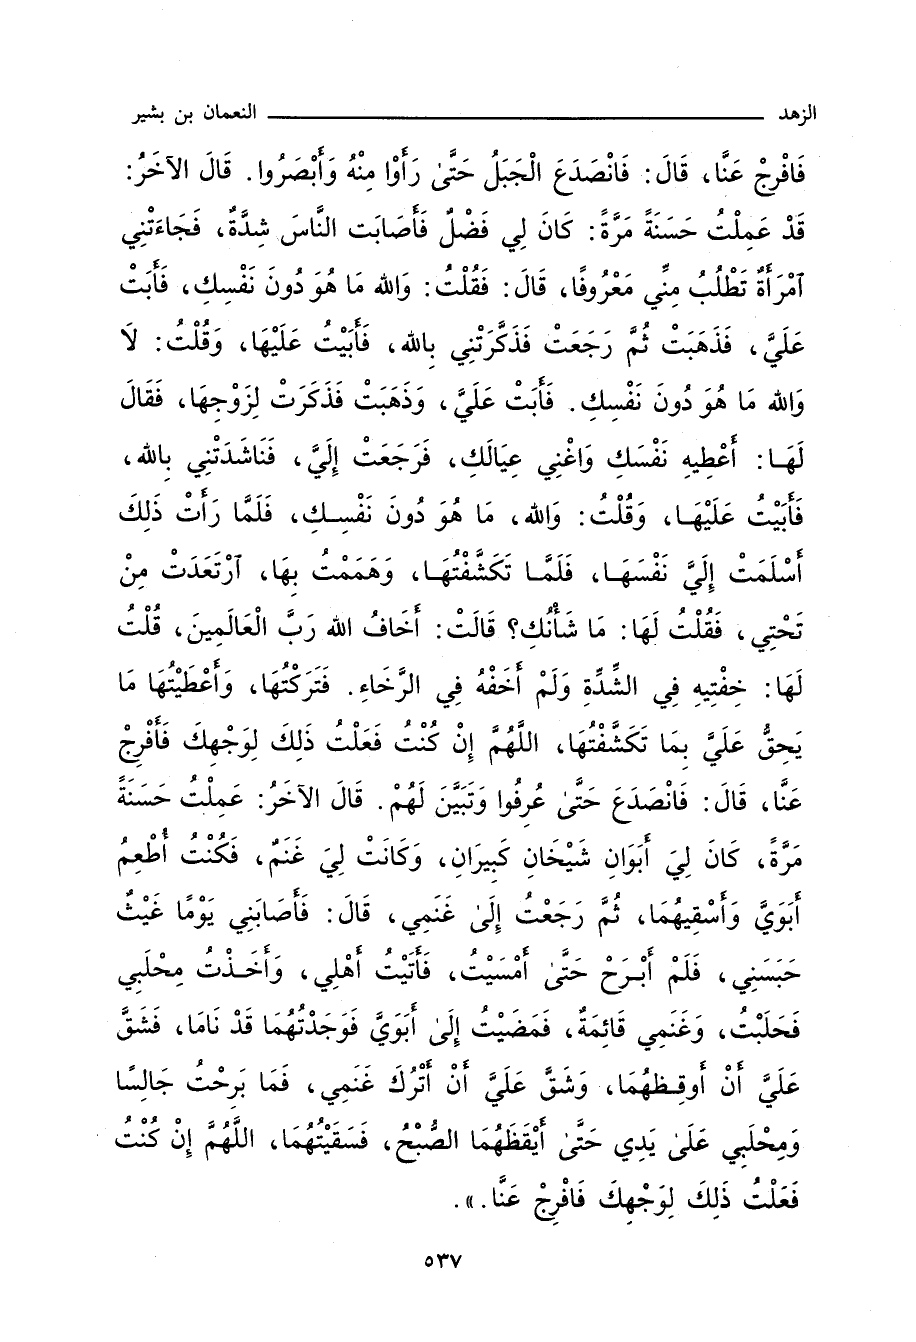 الزهد ــــــــــــــــــــــــــــــــــــــــ النعمان بن بشير
فَافْرِجْ عَنَّا، قَالَ: فَانْصَدَعَ الْجَبَلُ حَتَّىٰ رَأَوْا مِنْهُ وَأَبْصَرُوا. قَالَ الآخَرُ:
قَدْ عَمِلْتُ حَسَنَةً مَرَّةً: كَانَ لِي فَضْلٌ فَأَصَابَت النَّاسَ شِدَّةٌ، فَجَاءَتْنِي
ٱمْرَأَةٌ تَطْلُبُ مِنِّي مَعْرُوفًا، قَالَ: فَقُلْتُ: وَالله مَا هُوَ دُونَ نَفْسِكِ، فَأَبَتْ
عَلَيَّ، فَذَهَبَتْ ثُمَّ رَجَعَتْ فَذَكَّرَتْنِي بِالله، فَأَبَيْتُ عَلَيْهَا، وَقُلْتُ: لَا
وَالله مَا هُوَ دُونَ نَفْسِكِ. فَأَبَتْ عَلَيَّ، وَذَهَبَتْ فَذَكَرَتْ لِزَوْجِهَا، فَقَالَ
لَهَـا: أَعْطِيهِ نَفْسَكِ وَاغْنِي عِيَالَكِ، فَرَجَعَتْ إِلَيَّ، فَنَاشَدَتْنِي بِالله،
فَأَبَيْتُ عَلَيْهَـا، وَقُلْتُ: وَالله، مَا هُوَ دُونَ نَفْسِـكِ، فَلَمَّا رَأَتْ ذَلِكَ
أَسْلَمَتْ إِلَيَّ نَفْسَهَـا، فَلَمَّـا تَكَشَّفْتُهَـا، وَهَمَمْتُ بِهَا، ٱرْتَعَدَتْ مِنْ
تَحْتِي، فَقُلْتُ لَهَا: مَا شَأْنُكِ؟ قَالَتْ: أَخَافُ الله رَبَّ الْعَالَمِينَ، قُلْتُ
لَهَا: خِفْتِيهِ فِي الشِّدَّةِ وَلَمْ أَخَفْهُ فِي الرَّخَاءِ. فَتَرَكْتُهَا، وَأَعْطَيْتُهَا مَا
يَحِقُّ عَلَيَّ بِمَا تَكَشَّفْتُهَا، اللَّهُمَّ إِنْ كُنْتُ فَعَلْتُ ذَلِكَ لِوَجْهِكَ فَأَفْرِجْ
عَنَّا، قَالَ: فَانْصَدَعَ حَتَّىٰ عُرِفُوا وَتَبَيَّنَ لَهُمْ. قَالَ الآخَرُ: عَمِلْتُ حَسَنَةً
مَرَّةً، كَانَ لِيَ أَبَوَانِ شَيْخَانِ كَبِيرَانِ، وَكَانَتْ لِيَ غَنَمٌ، فَكُنْتُ أُطْعِمُ
أَبَوَيَّ وَأَسْقِيهُمَا، ثُمَّ رَجَعْتُ إِلَىٰ غَنَمِي، قَالَ: فَأَصَابَنِي يَوْمًا غَيْثٌ
حَبَسَنِي، فَلَمْ أَبْـرَحْ حَتَّىٰ أَمْسَيْتُ، فَأَتَيْتُ أَهْلِي، وَأَخَـذْتُ مِحْلَبِي
فَحَلَبْتُ، وَغَنَمِي قَائِمَةٌ، فَمَضَيْتُ إِلَىٰ أَبَوَيَّ فَوَجَدْتُهُمَا قَدْ نَامَا، فَشَقَّ
عَلَيَّ أَنْ أُوقِـظَهُمَا، وَشَقَّ عَلَيَّ أَنْ أَتْرُكَ غَنَمِي، فَمَا بَرِحْتُ جَالِسًا
وَمِحْلَبِي عَلَىٰ يَدِي حَتَّىٰ أَيْقَظَهُمَا الصُّبْحُ، فَسَقَيْتُهُمَا، اللَّهُمَّ إِنْ كُنْتُ
فَعَلْتُ ذَلِكَ لِوَجْهِكَ فَافْرِجْ عَنَّا.».
٥٣٧